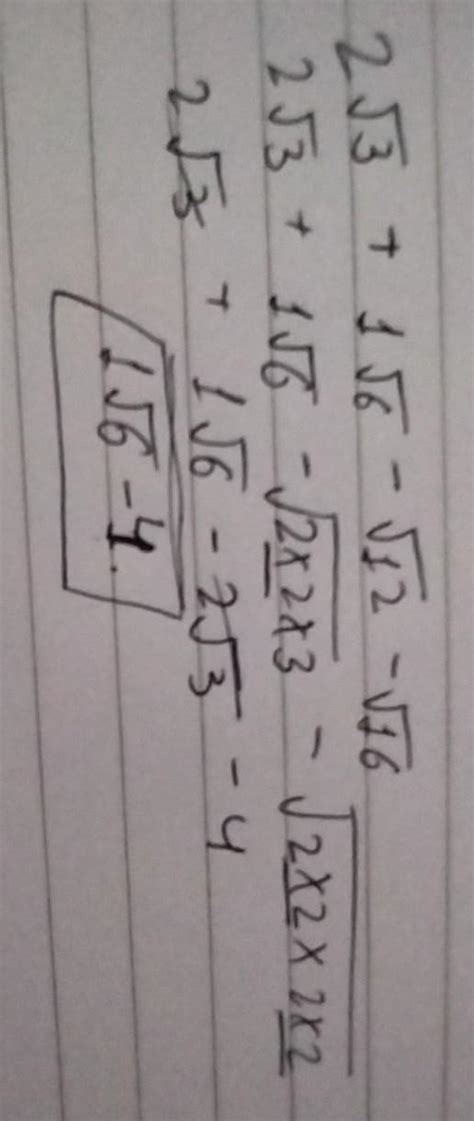 2√3 + 1√6 - √12 - √16
2√3 + 1√6 - √2×2×3 - √2×2×2×2
2√3 + 1√6 - 2√3 - 4
1√6 - 4.